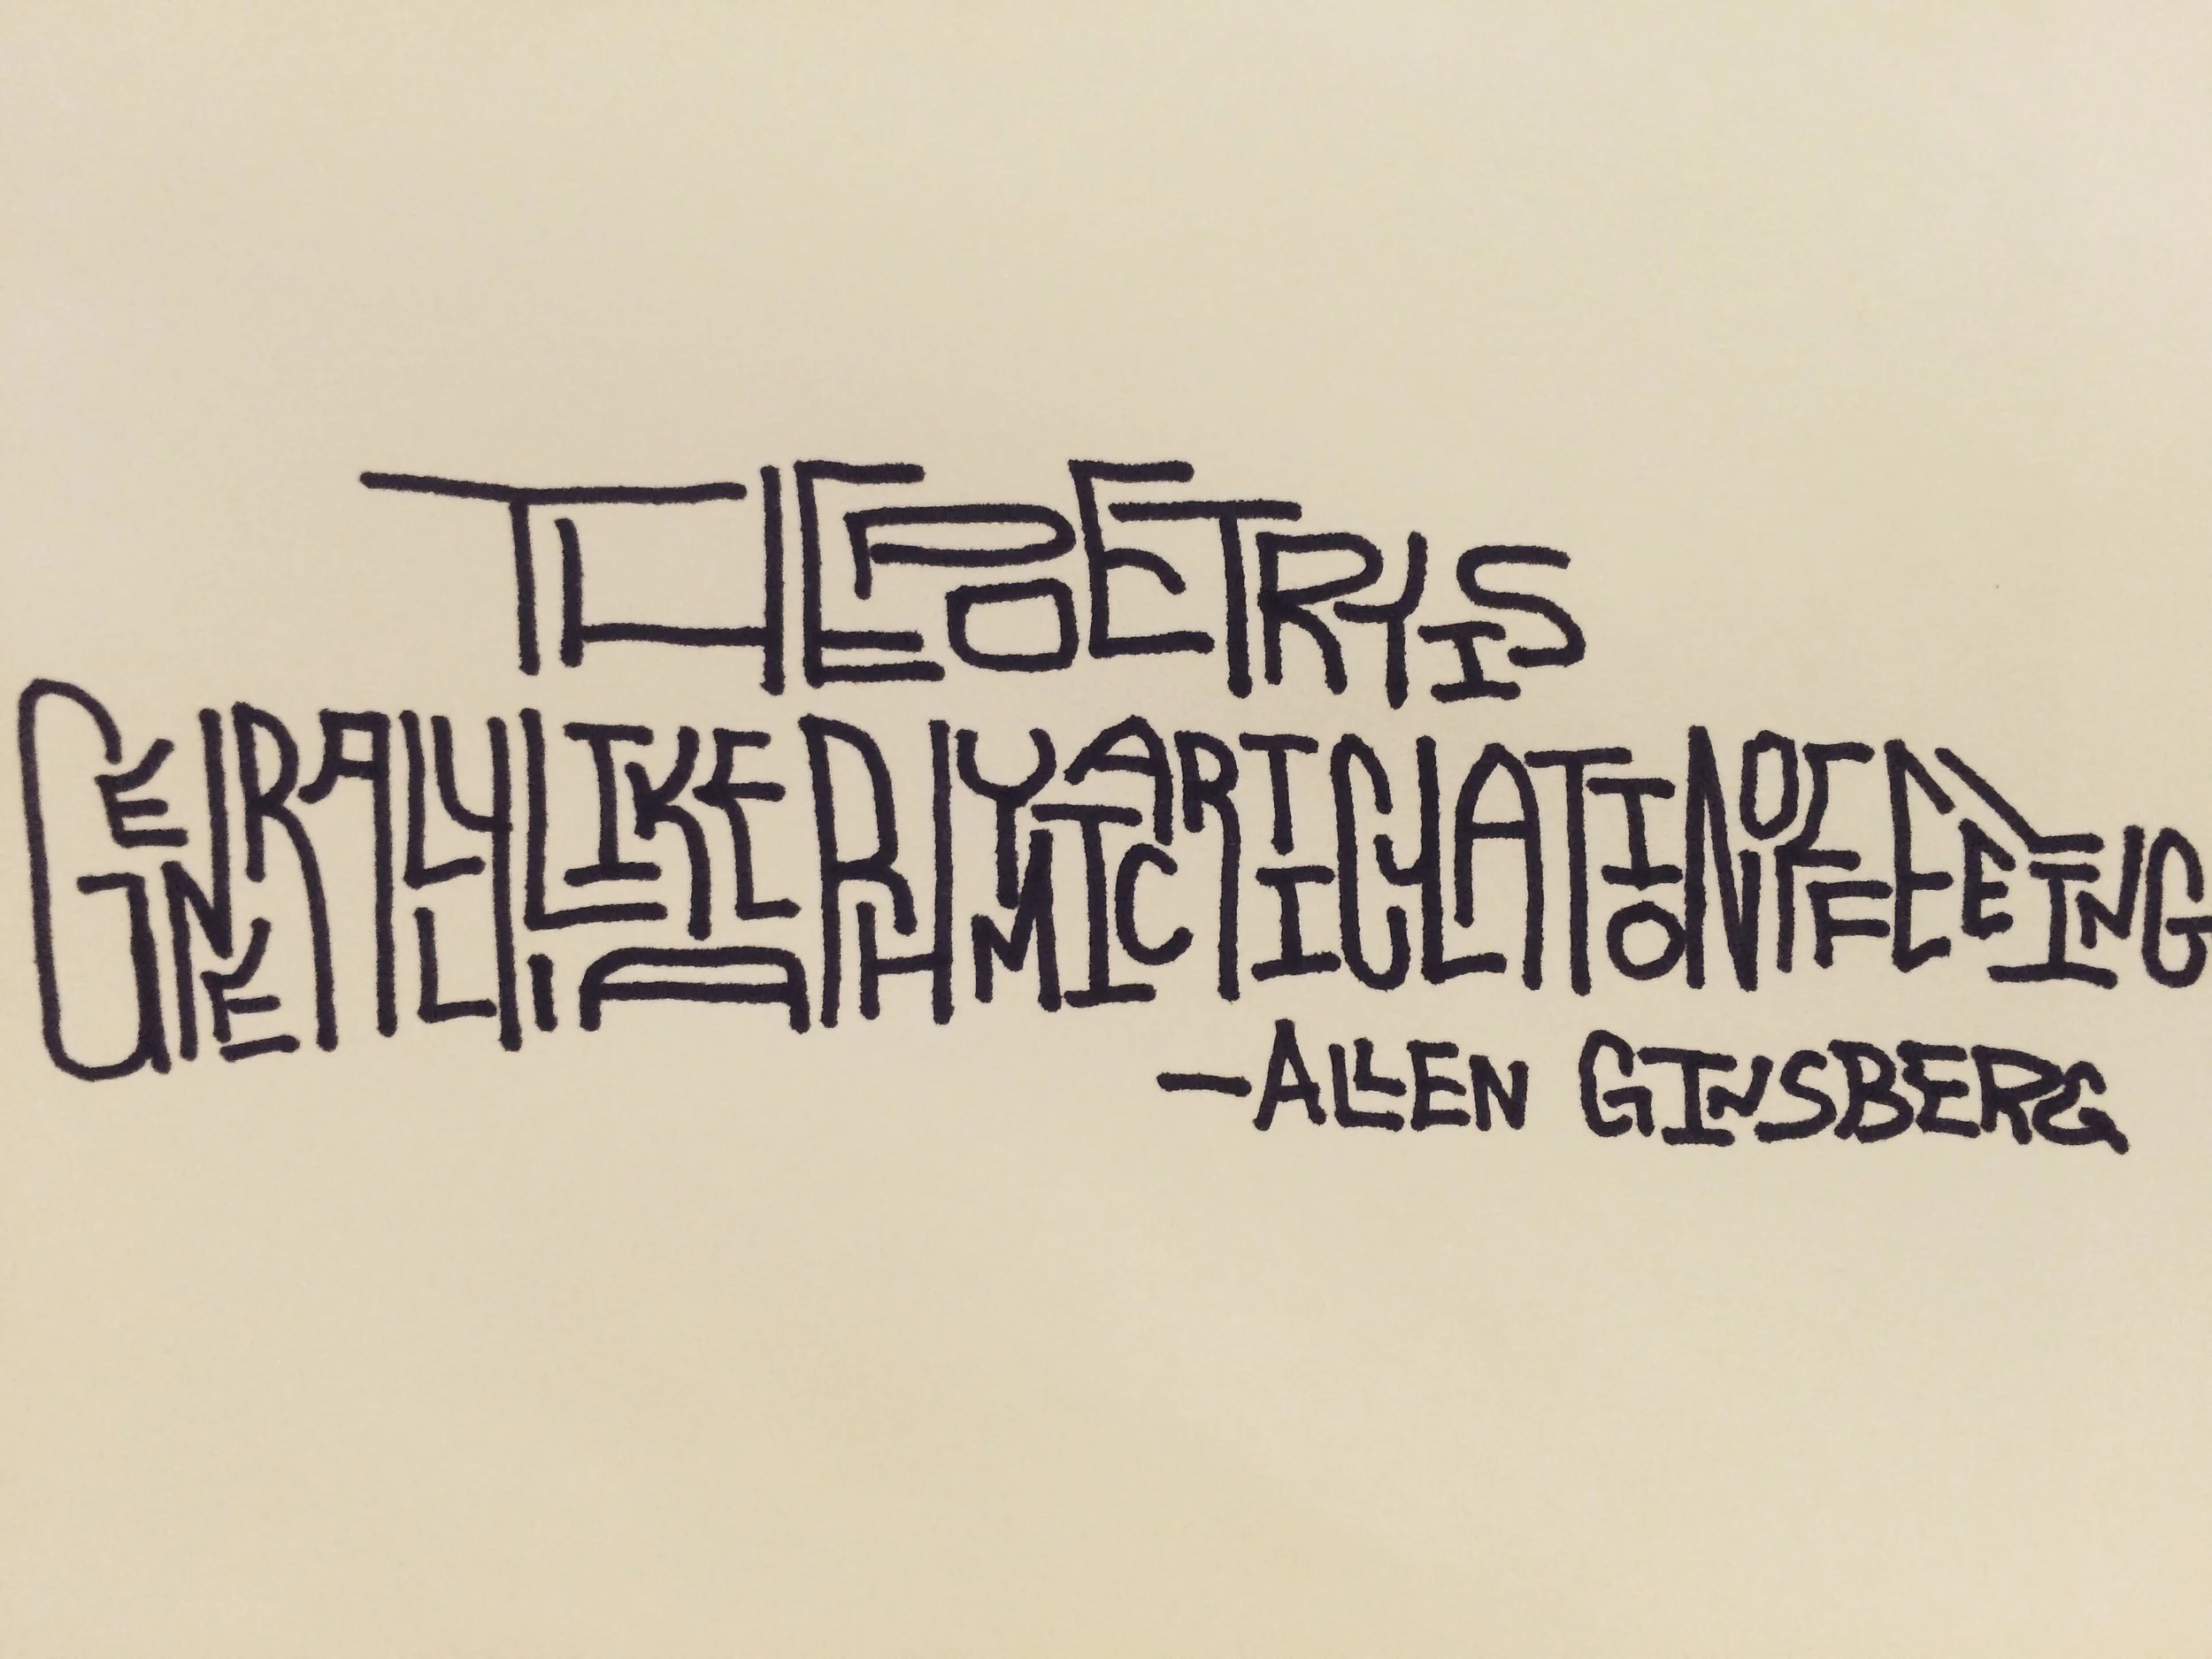 THE POETRY IS
GENERALLY LIKE A RHYMIC ARTICULATION OF FEELING
—ALLEN GINSBERG